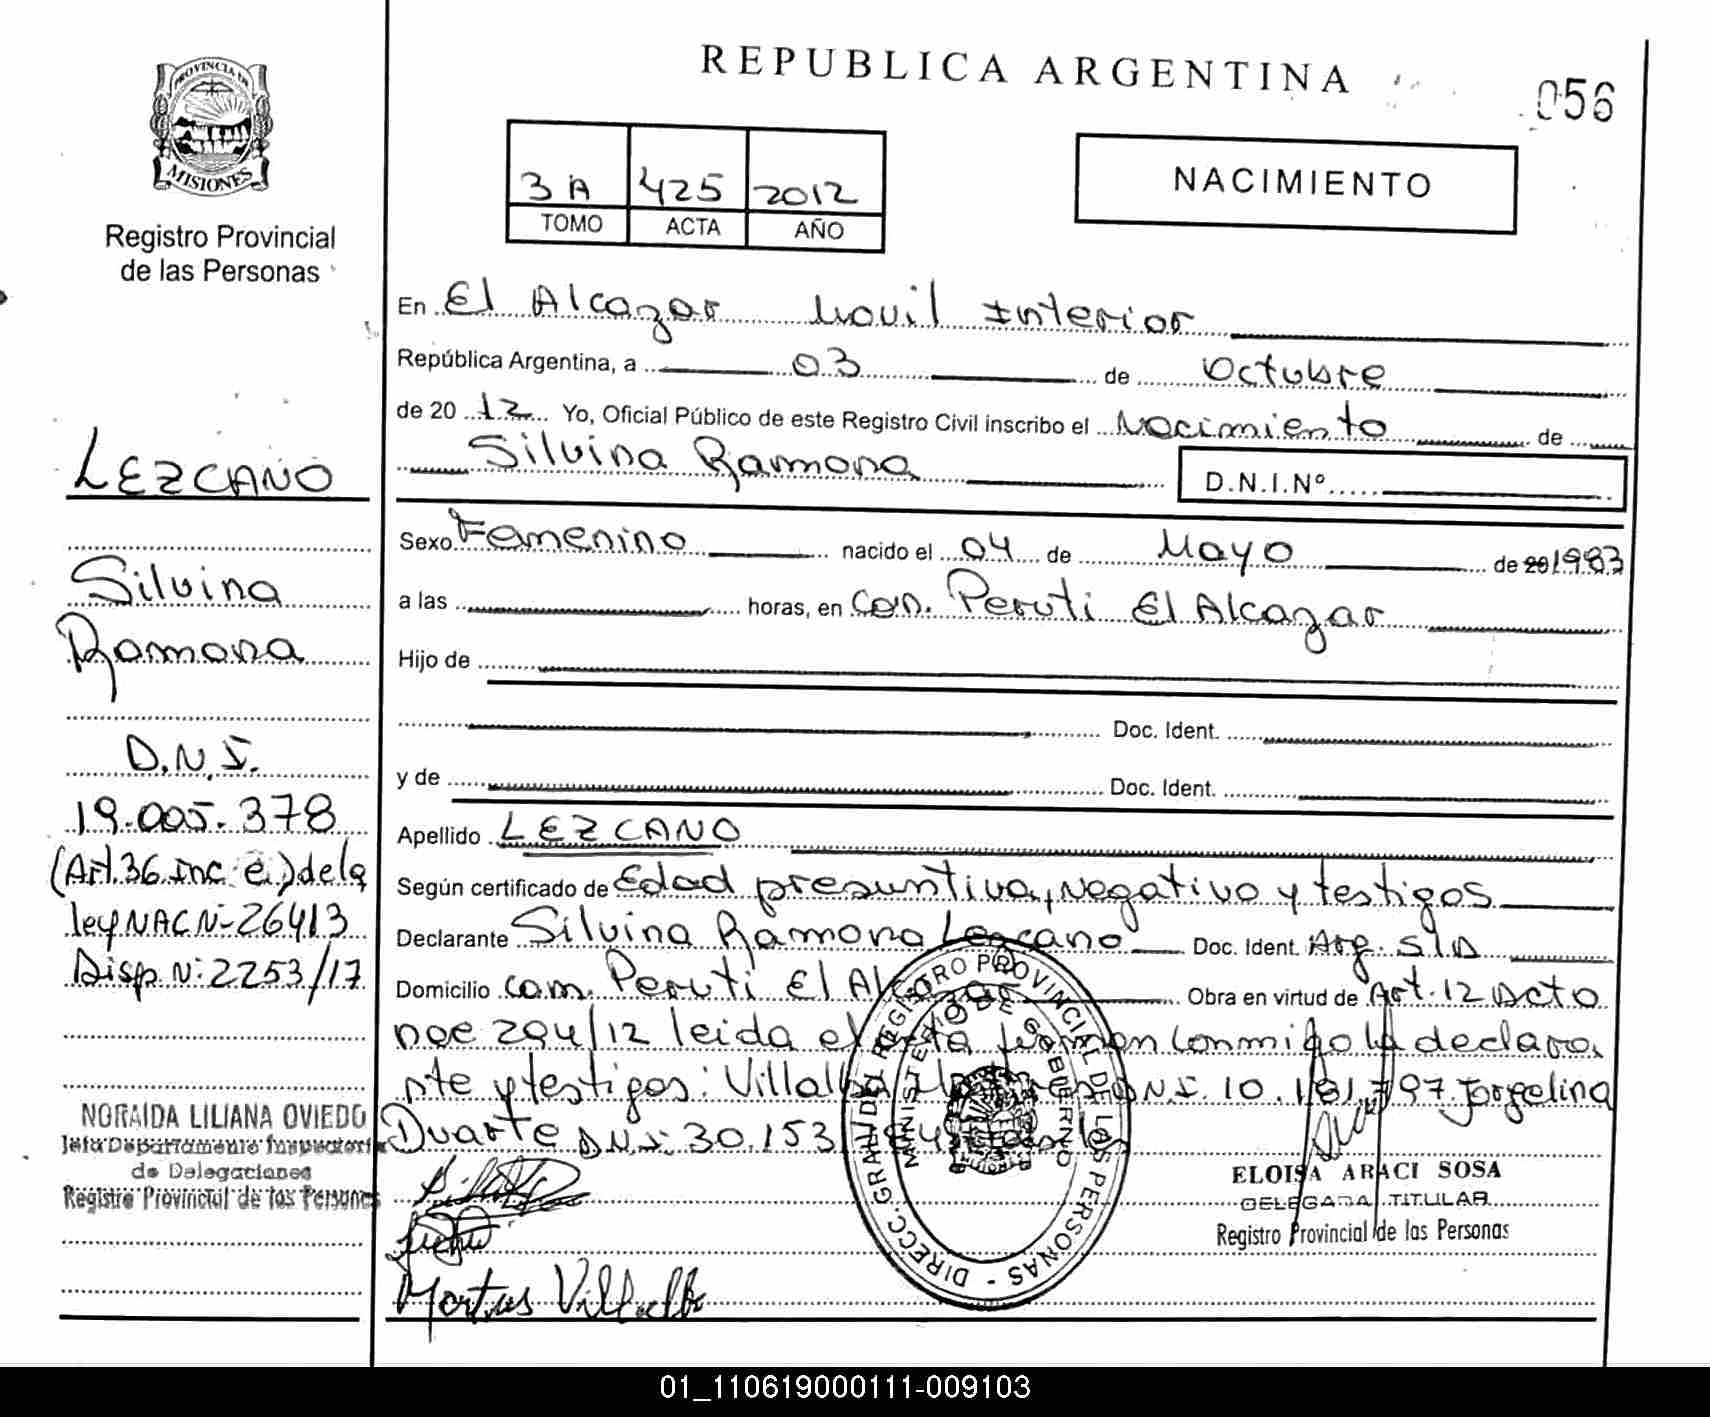 REPUBLICA ARGENTINA
056
PROVINCIA DE
MISIONES
Registro Provincial
de las Personas
3 A 425 2012
TOMO ACTA AÑO
NACIMIENTO
En El Alcazar Movil Interior
República Argentina, a 03 de Octubre
de 20 12 Yo, Oficial Público de este Registro Civil inscribo el Nacimiento de
Silvina Ramona D.N.I.Nº
Sexo Femenino nacido el 04 de Mayo de 20 1983
a las horas, en Com. Peruti El Alcazar
Hijo de
Doc. Ident.
y de Doc. Ident.
Apellido LEZCANO
Según certificado de Edad presuntiva, negativo y testigos
Declarante Silvina Ramona Lezcano Doc. Ident. Arg. S/D
Domicilio com. Peruti El Alcazar Obra en virtud de Art. 12 Dcto
nac 294/12 leida el acta firman conmigo la declara
nte y testigos: Villalba D.N.I. 10.181.797 Jorgelina
Duarte D.N.I. 30.153
Mortus Villalba
DIRECC. GRAL. DEL REGISTRO PROVINCIAL DE LAS PERSONAS
MINISTERIO DE GOBIERNO
ELOISA ARACI SOSA
DELEGADA TITULAR
Registro Provincial de las Personas
LEZCANO
Silvina
Ramona
D.N.I.
19.005.378
(Art.36 Inc e) de la
ley NAC Nº 26413
Disp Nº 2253/17
NORAIDA LILIANA OVIEDO
Jefa Departamento Inspectoria
de Delegaciones
Registro Provincial de las Personas
01_110619000111-009103